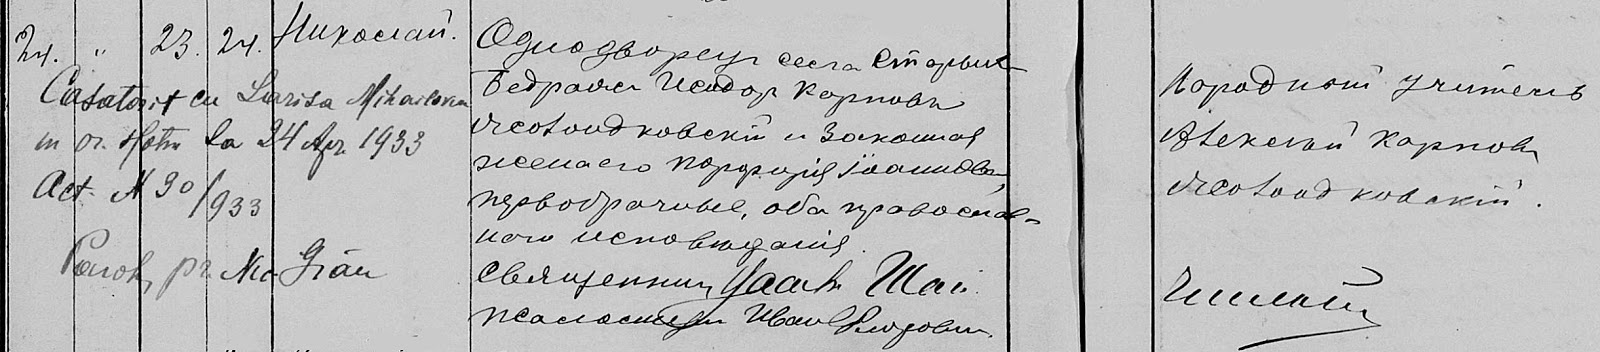 24. " 23. 24. Николай.
Casatorit cu Larisa Mihailovna
in or. Hotin la 24 Apr. 1933
Act. N 90/933
Paroh, pr. Nic. Grău
Однодворецъ села Старыхъ
Бедражъ Исидор Карповъ
и законная
жена его Порфирія Іоаннова,
первобрачные, оба православ-
наго исповѣданія.
Священникъ Исаакъ Шаи
псаломщикъ Иван
Народный учитель
Алексѣй Карповъ